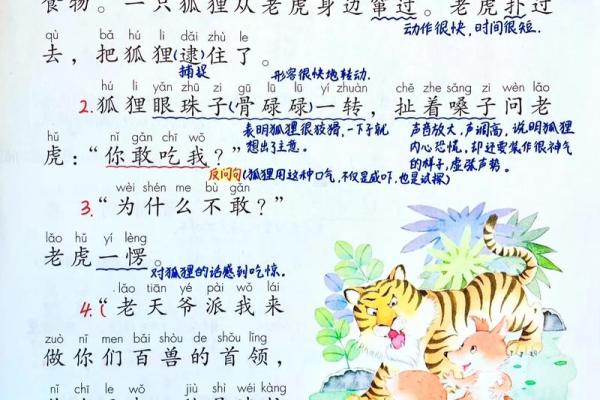 食物。一只狐狸从老虎身边窜过。老虎扑过
动作很快,时间很短.
qù bǎ hú li dǎi zhù le
去,把狐狸(逮)住了。
捕捉
形容很快地转动.
hú li yǎn zhū zi gǔ lù lù yí zhuàn chě zhe sǎng zi wèn lǎo
2.狐狸眼珠子(骨碌碌)一转,扯着嗓子问老
表明狐狸很狡猾,一下子就想出了主意。
声音放大,声调高,说明狐狸内心恐慌,却还要装作很神气的样子,虚张声势。
hǔ nǐ gǎn chī wǒ
虎:“你敢吃我?”
反问句(狐狸用这种口气,不仅是威吓,也是试探)
wèi shén me bù gǎn
3.“为什么不敢?”
lǎo hǔ yí lèng
老虎一愣。
对狐狸的话感到吃惊.
lǎo tiān yé pài wǒ lái
4.(“老天爷派我来
zuò nǐ men bǎi shòu de shǒu lǐng
做你们百兽的首领,
nǐ chī le wǒ jiù shì wéi kàng